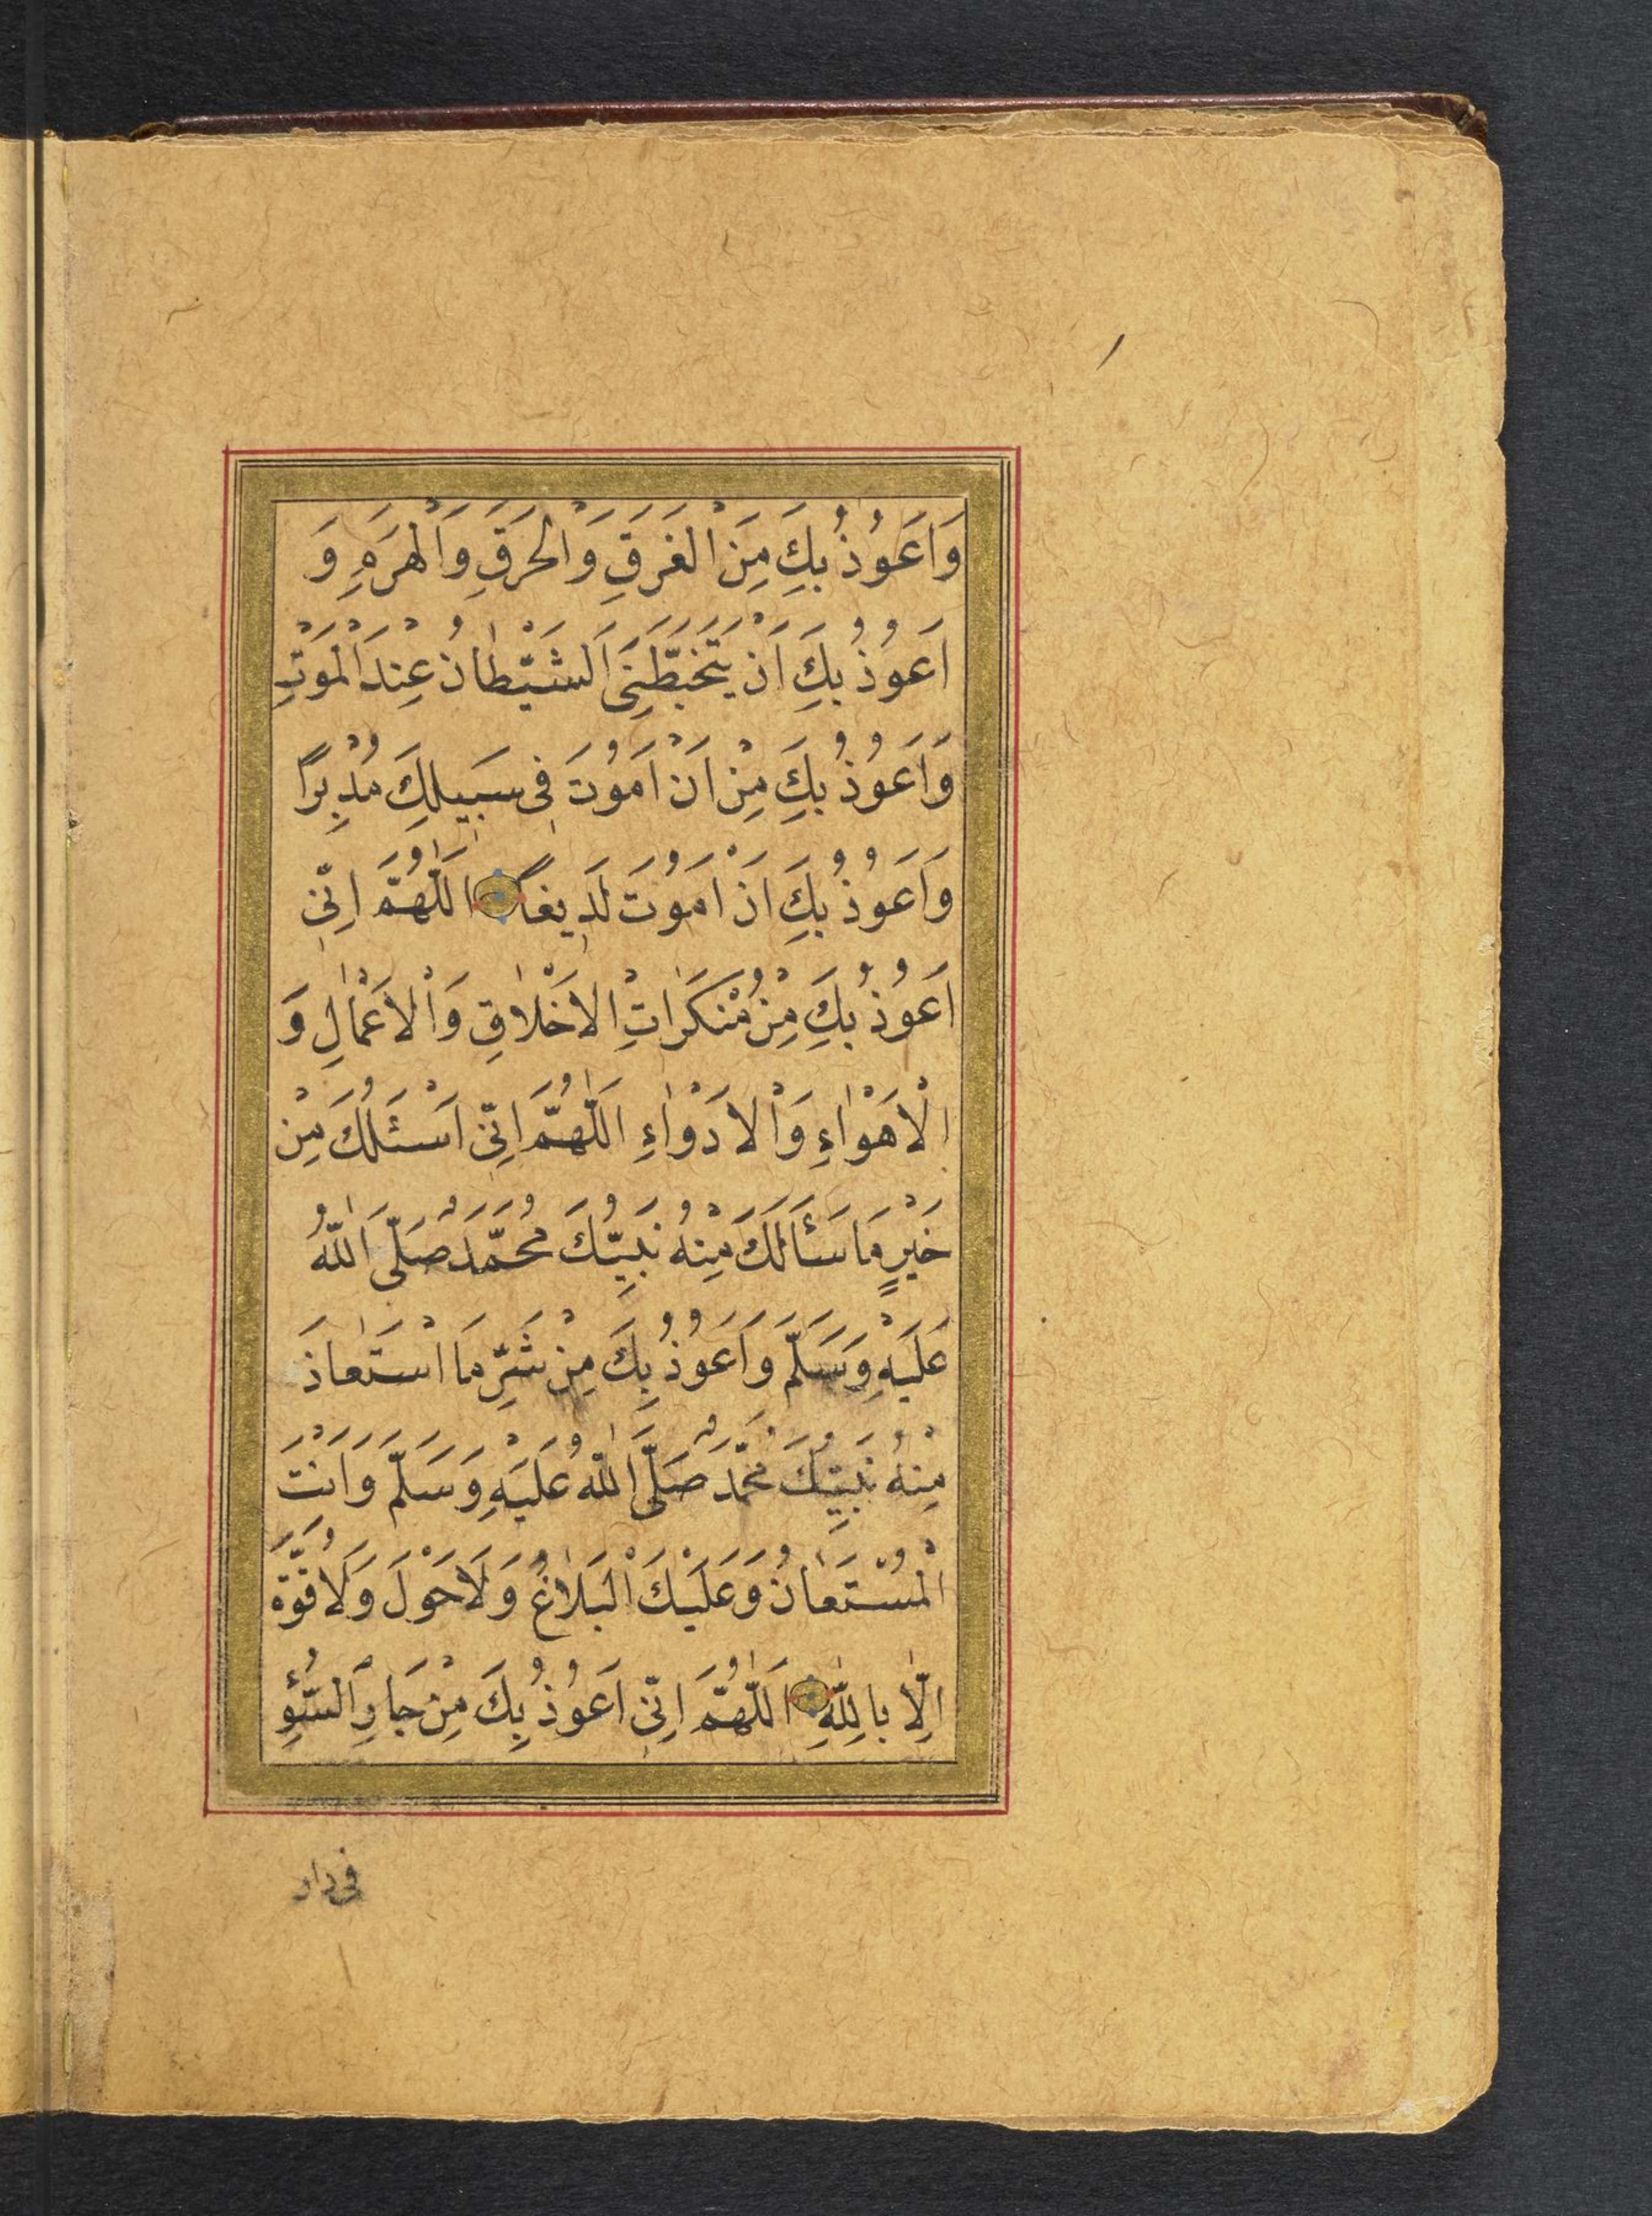 وَاَعُوذُ بِكَ مِنَ الْغَرَقِ وَالْحَرَقِ وَالْهَرَمِ وَ
اَعُوذُ بِكَ اَنْ يَتَخَبَّطَنِىَ الشَّيْطَانُ عِنْدَ الْمَوْتِ
وَاَعُوذُ بِكَ مِنْ اَنْ اَمُوتَ فِى سَبِيلِكَ مُدْبِرًا
وَاَعُوذُ بِكَ اَنْ اَمُوتَ لَدِيغًا اَللّٰهُمَّ اِنِّى
اَعُوذُ بِكَ مِنْ مُنْكَرَاتِ الْاَخْلَاقِ وَالْاَعْمَالِ وَ
الْاَهْوَاءِ وَالْاَدْوَاءِ اَللّٰهُمَّ اِنِّى اَسْئَلُكَ مِنْ
خَيْرِ مَا سَئَالَكَ مِنْهُ نَبِيُّكَ مُحَمَّدٌ صَلَّى اللّٰهُ
عَلَيْهِ وَسَلَّمَ وَاَعُوذُ بِكَ مِنْ شَرِّ مَا اسْتَعَاذَ
مِنْهُ نَبِيُّكَ مُحَمَّدٌ صَلَّى اللّٰهُ عَلَيْهِ وَسَلَّمَ وَاَنْتَ
الْمُسْتَعَانُ وَعَلَيْكَ الْبَلَاغُ وَلَا حَوْلَ وَلَا قُوَّةَ
اِلَّا بِاللّٰهِ اَللّٰهُمَّ اِنِّى اَعُوذُ بِكَ مِنْ جَارِ السُّوءِ
فى دار